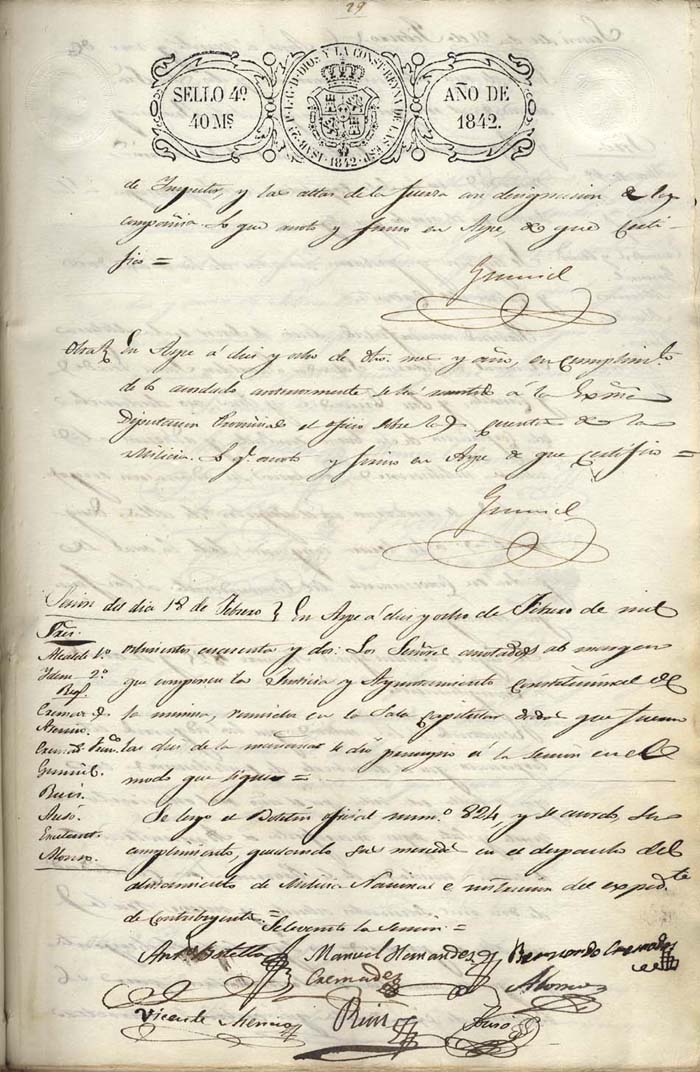 29
SELLO 4º
40 Ms
ISAB. 2ª P. L. G. D. DIOS Y LA CONST. REYNA DE LAS ESP. 1842
AÑO DE
1842.
de Inquetos, y las altas de la fuerza con designacion de la
compañia. Lo que anoto y firmo en Aspe, de que certi-
fico =
Gumiel
Otra En Aspe á diez y ocho de dho. mes y año, en cumplimto.
de lo acordado anteriormente se há remitido á la Exma
Diputacion Provincial el oficio sobre las cuentas de la
Milicia. Lo qe. anoto y firmo en Aspe de que certifico =
Gumiel
Sesion del dia 18 de Febrero } En Aspe á diez y ocho de Febrero de mil
Sres.
Alcalde 1º ochocientos cuarenta y dos: Los Señores anotados al margen
Idem 2º que componen la Justicia y Ayuntamiento Constitucional de
Cremades la misma, reunidos en la Sala Capitular dadas que fueron
Asencio.
las diez de la mañana se dió principio á la sesion en el
Gumiel. modo que sigue =
Rico.
Ausó. Se leyo el Boletin oficial num.º 824, y se acordó su
cumplimiento, quedando sus mercedes en el despacho del
Alonso.
alistamiento de Milicia Nacional é instruccion del expedte
de Contribuyentes = Se levantó la sesion =
Anto. Botella Manuel Hernandez Bernardo Cremades
Cremades Alonso
Vicente Asencio Rico Ausó